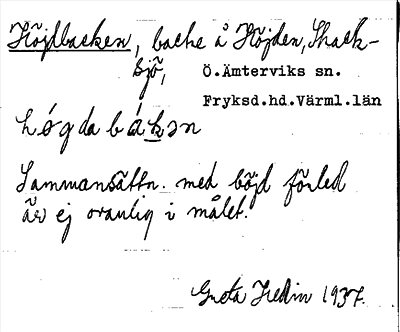 Höjdbacken, backe å Höjden, Skack-
sjö,
Ö.Ämterviks sn.
Fryksd.hd.Värml.län
högdabákən
Sammansättn. med böjd förled
är ej ovanlig i målet.
Greta Hedin 1937.